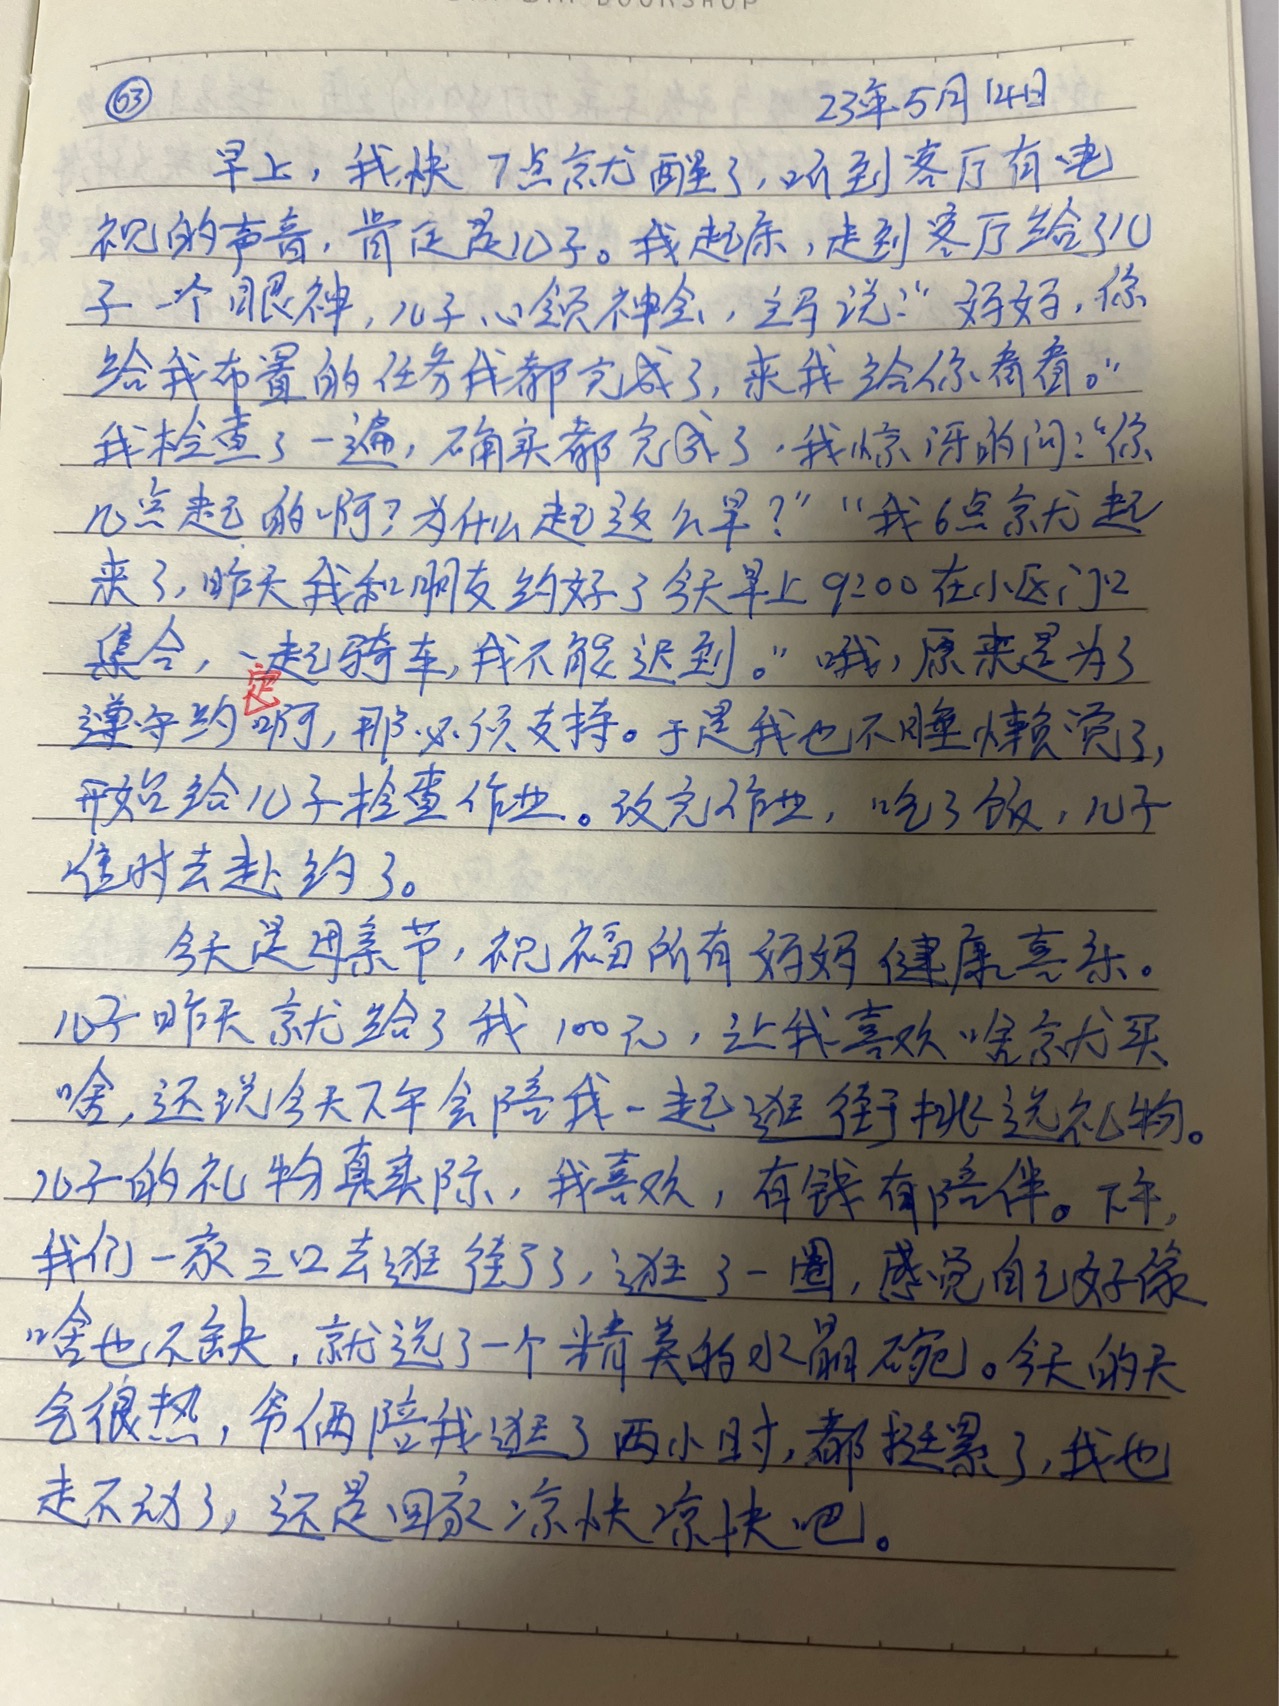 63
23年5月14日
早上，我快7点就醒了，听到客厅有电
视的声音，肯定是儿子。我起床，走到客厅给了儿
子一个眼神，儿子心领神会，主动说：“妈妈，你
给我布置的任务我都完成了，来我给你看看。”
我检查了一遍，确实都完成了，我惊讶的问：“你
几点起的啊？为什么起这么早？”“我6点就起
来了，昨天我和朋友约好了今天早上9:00在小区门口
集合，一起骑车，我不能迟到。”哦，原来是为了
遵守约定啊，那必须支持。于是我也不睡懒觉了，
开始给儿子检查作业。改完作业，吃了饭，儿子
准时去赴约了。
今天是母亲节，祝福所有妈妈健康喜乐。
儿子昨天就给了我100元，让我喜欢啥就买
啥，还说今天下午会陪我一起逛街挑选礼物。
儿子的礼物真实际，我喜欢，有钱有陪伴。下午，
我们一家三口去逛街了，逛了一圈，感觉自己好像
啥也不缺，就选了一个精美的水晶碗。今天的天
气很热，爷俩陪我逛了两小时，都挺累了，我也
走不动了，还是回家凉快凉快吧。